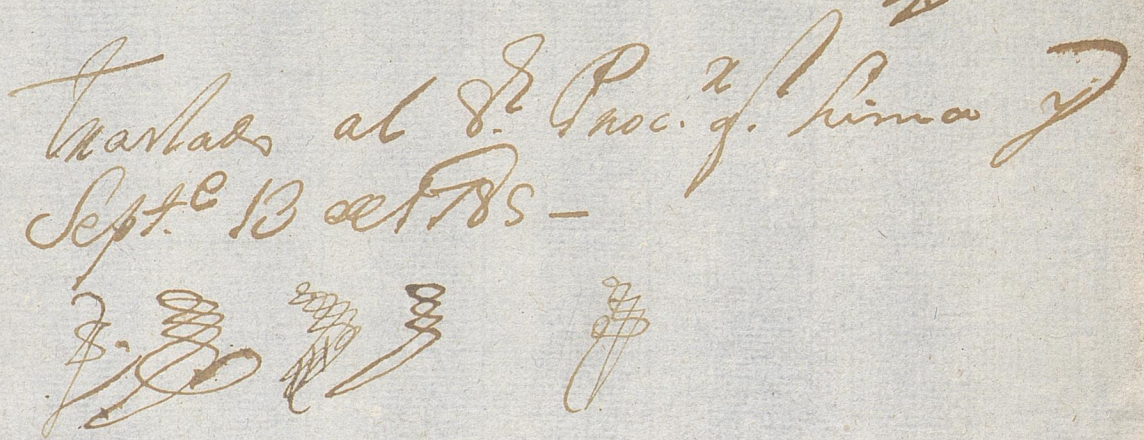 Traslado al S.r Proc.r g.l Lima y
Sept.e 13 de 1785 –